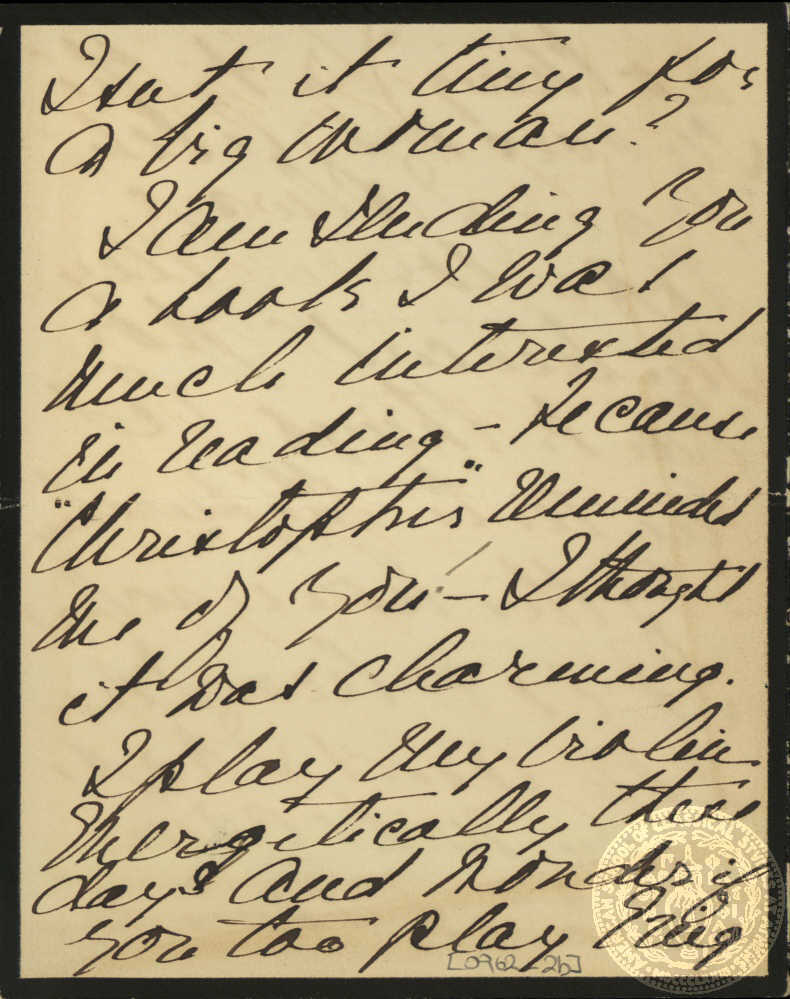 Isnt it tiny for
a big woman?
I am sending you
a book I was
much interested
in reading - because
"Christopher" reminded
me of you! - I thought
it was charming.
I play my violin
energetically these
days and wonder if
you too play
[0962_2b]